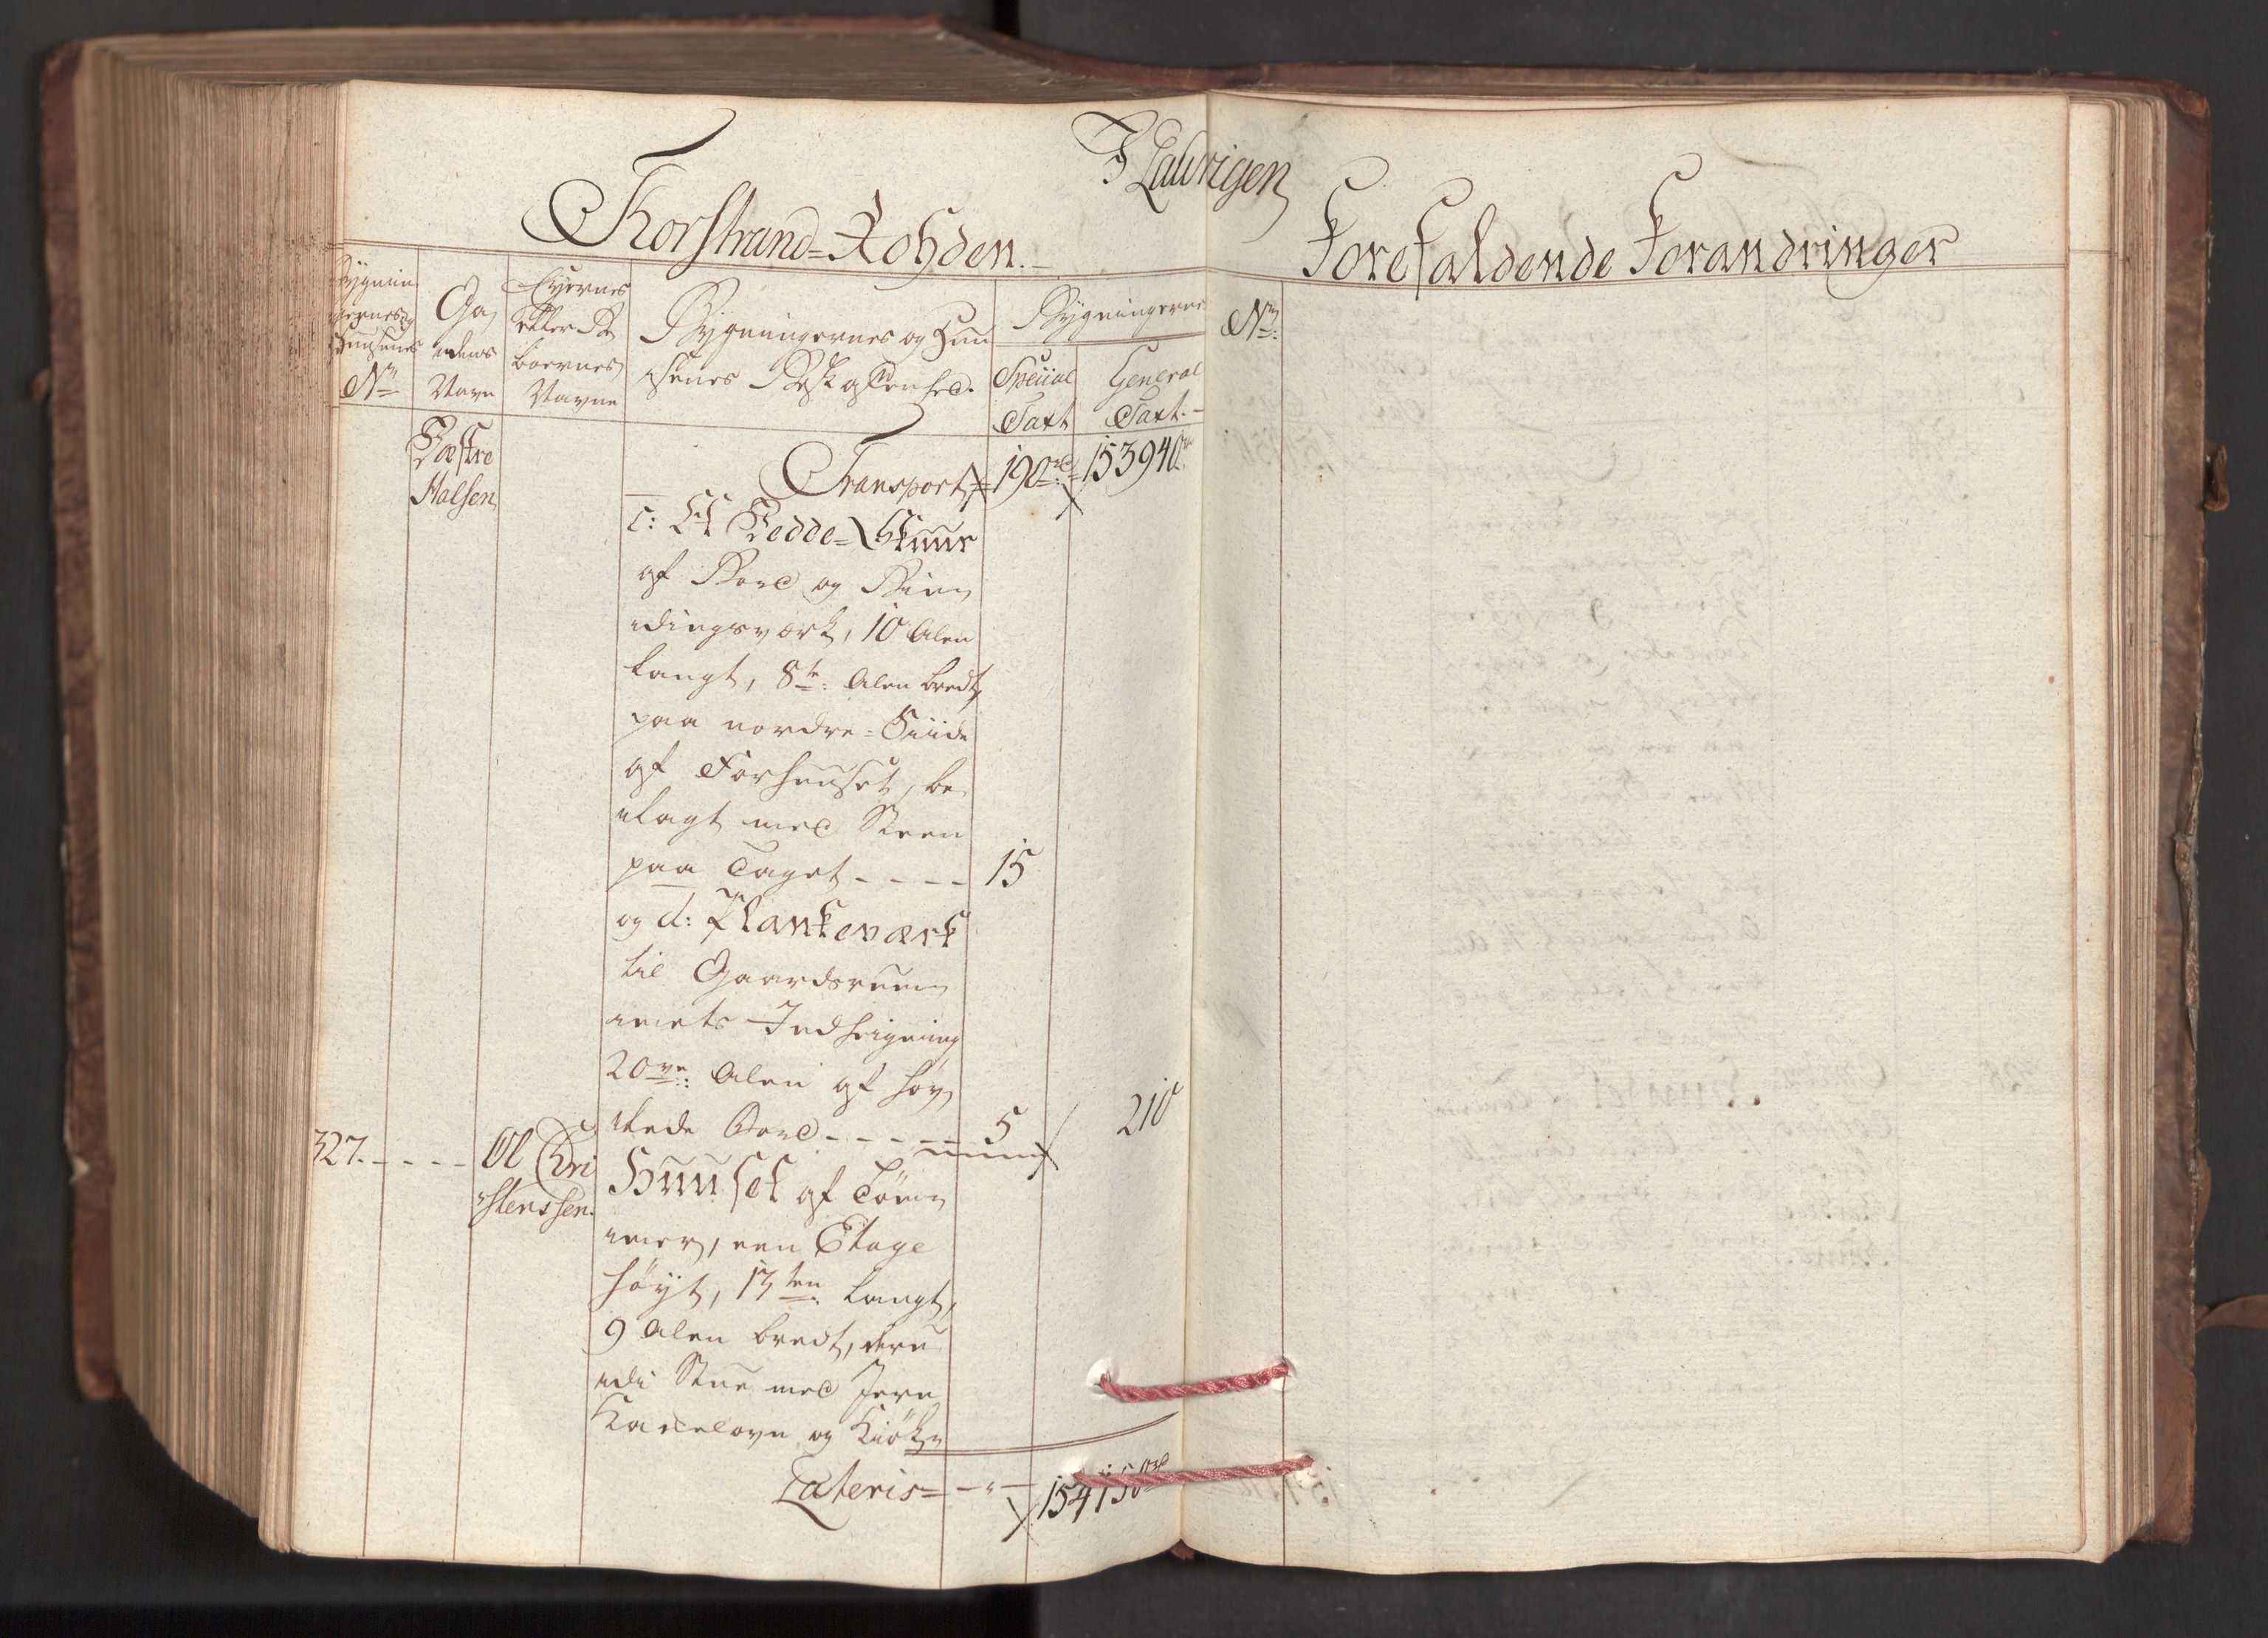 I Laurvigen
Thorstrand-Rohden.
Forefaldende Forandringer
Bygnin
gernes og
Huusenes
No
Ga
dens
Navn
Eyernes
eller Be
boernes
Navne
Bygningernes og Huu
senes Beskaffenhed.
Bygningernes
Special
Taxt
General
Taxt.
No
Væstre
Halsen
Transport 190rd 153940rd
c: Et Vedde-Skuur
af Bord og Bin
dingsværk, 10 Alen
langt, 8te Alen bredt
paa nordre-Siide
af Forhuuset, be
lagt med Steen
paa Taget - - - - 15
og d: Plankeværk
til Gaardsrum
mets Indheigning
20ve: Alen af høv
lede Bord - - - - 5 210
327. - - - - Ol Chri
stenssen.
Huuset af Tøm
mer, een Etage
høyt, 13ten langt,
9 Alen bredt, deru
di Stue med Jern
Kackelovn og Kiøken
Lateris= - " - 154150rd